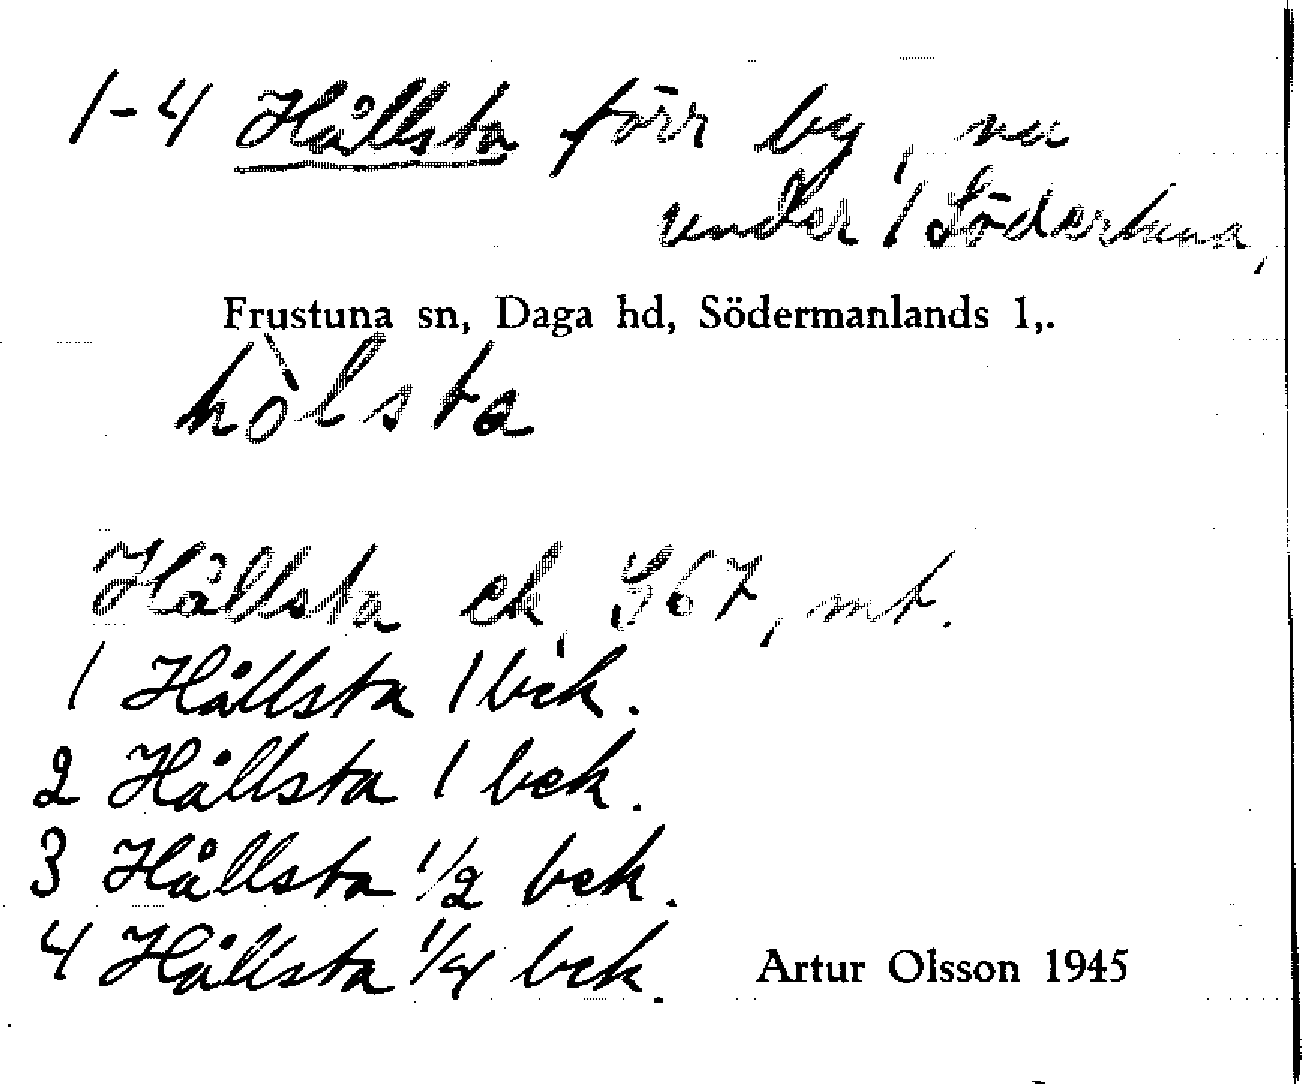 1-4 Hållsta förr by, nu
under 1 Södertuna,
Frustuna sn, Daga hd, Södermanlands l,.
hòlsta
Hållsta ek, S67, mt.
1 Hållsta 1 bek.
2 Hållsta 1 bek.
3 Hållsta 1/2 bek.
4 Hållsta 1/4 bek.
Artur Olsson 1945